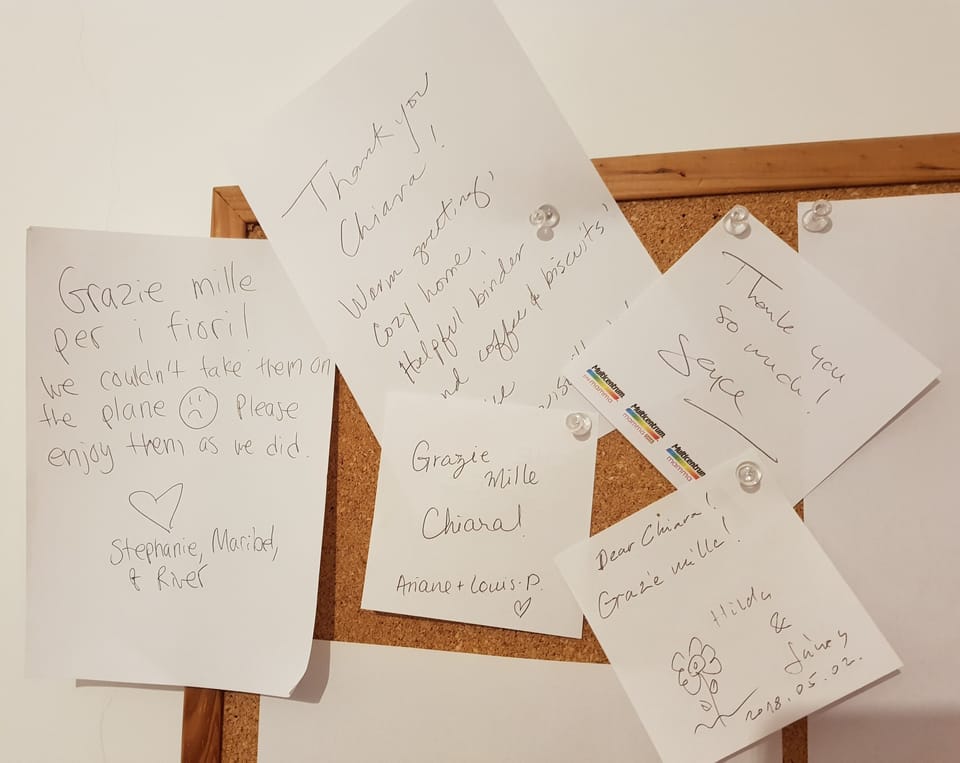 Grazie mille
per i fiori!
We couldn't take them on
the plane Please
enjoy them as we did.
Stephanie, Maribel,
& River
Thank you
Chiara!
Warm greeting,
Cozy home,
Helpful binder
nd coffee & biscuits,
Thank you
so much!
Multicentrum
mamma
Multicentrum
mamma
Multicentrum
mamma
Grazie
Mille
Chiara!
Ariane + Louis-P.
Dear Chiara!
Grazie mille!
Hilda
&
János
2018.05.02.